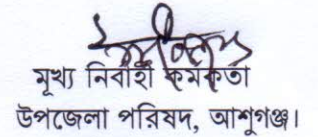 মুখ্য নির্বাহী কর্মকর্তা
উপজেলা পরিষদ, আশুগঞ্জ।